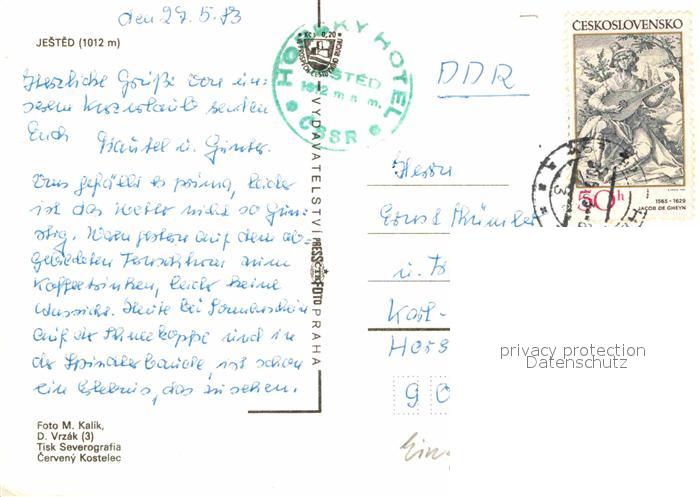 den 27.5.83
JEŠTĚD (1012 m)
Herzliche Grüße von un-
serem Kurzurlaub senden
Euch Bärbel u. Günter.
Uns gefällt es prima, leider
ist das Wetter nicht so gün-
stig. Waren gestern auf dem ab-
gebildeten Fernsehturm zum
Kaffeetrinken, leider keine
Aussicht. Heute bei Sonnenschein
auf der Schneekoppe und in
der Spindlerbaude, ist schon
ein Erlebnis, das zu sehen.
Foto M. Kalík,
D. Vrzák (3)
Tisk Severografia
Červený Kostelec
Kčs 0,20
HORSKÝ HOTEL
JEŠTĚD
1012 m n. m.
ČSSR
VYDAVATELSTVÍ PRESSFOTO PRAHA
DDR
ČESKOSLOVENSKO
50h
1565 - 1629
JACOB DE GHEYN
Herrn
Ernst
u.
Karl-
privacy protection
Datenschutz